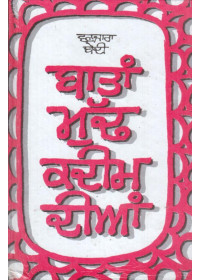 ਵਣਜਾਰਾ
ਬੇਦੀ
ਬਾਤਾਂ
ਮੁੱਢ
ਕਦੀਮ
ਦੀਆਂ